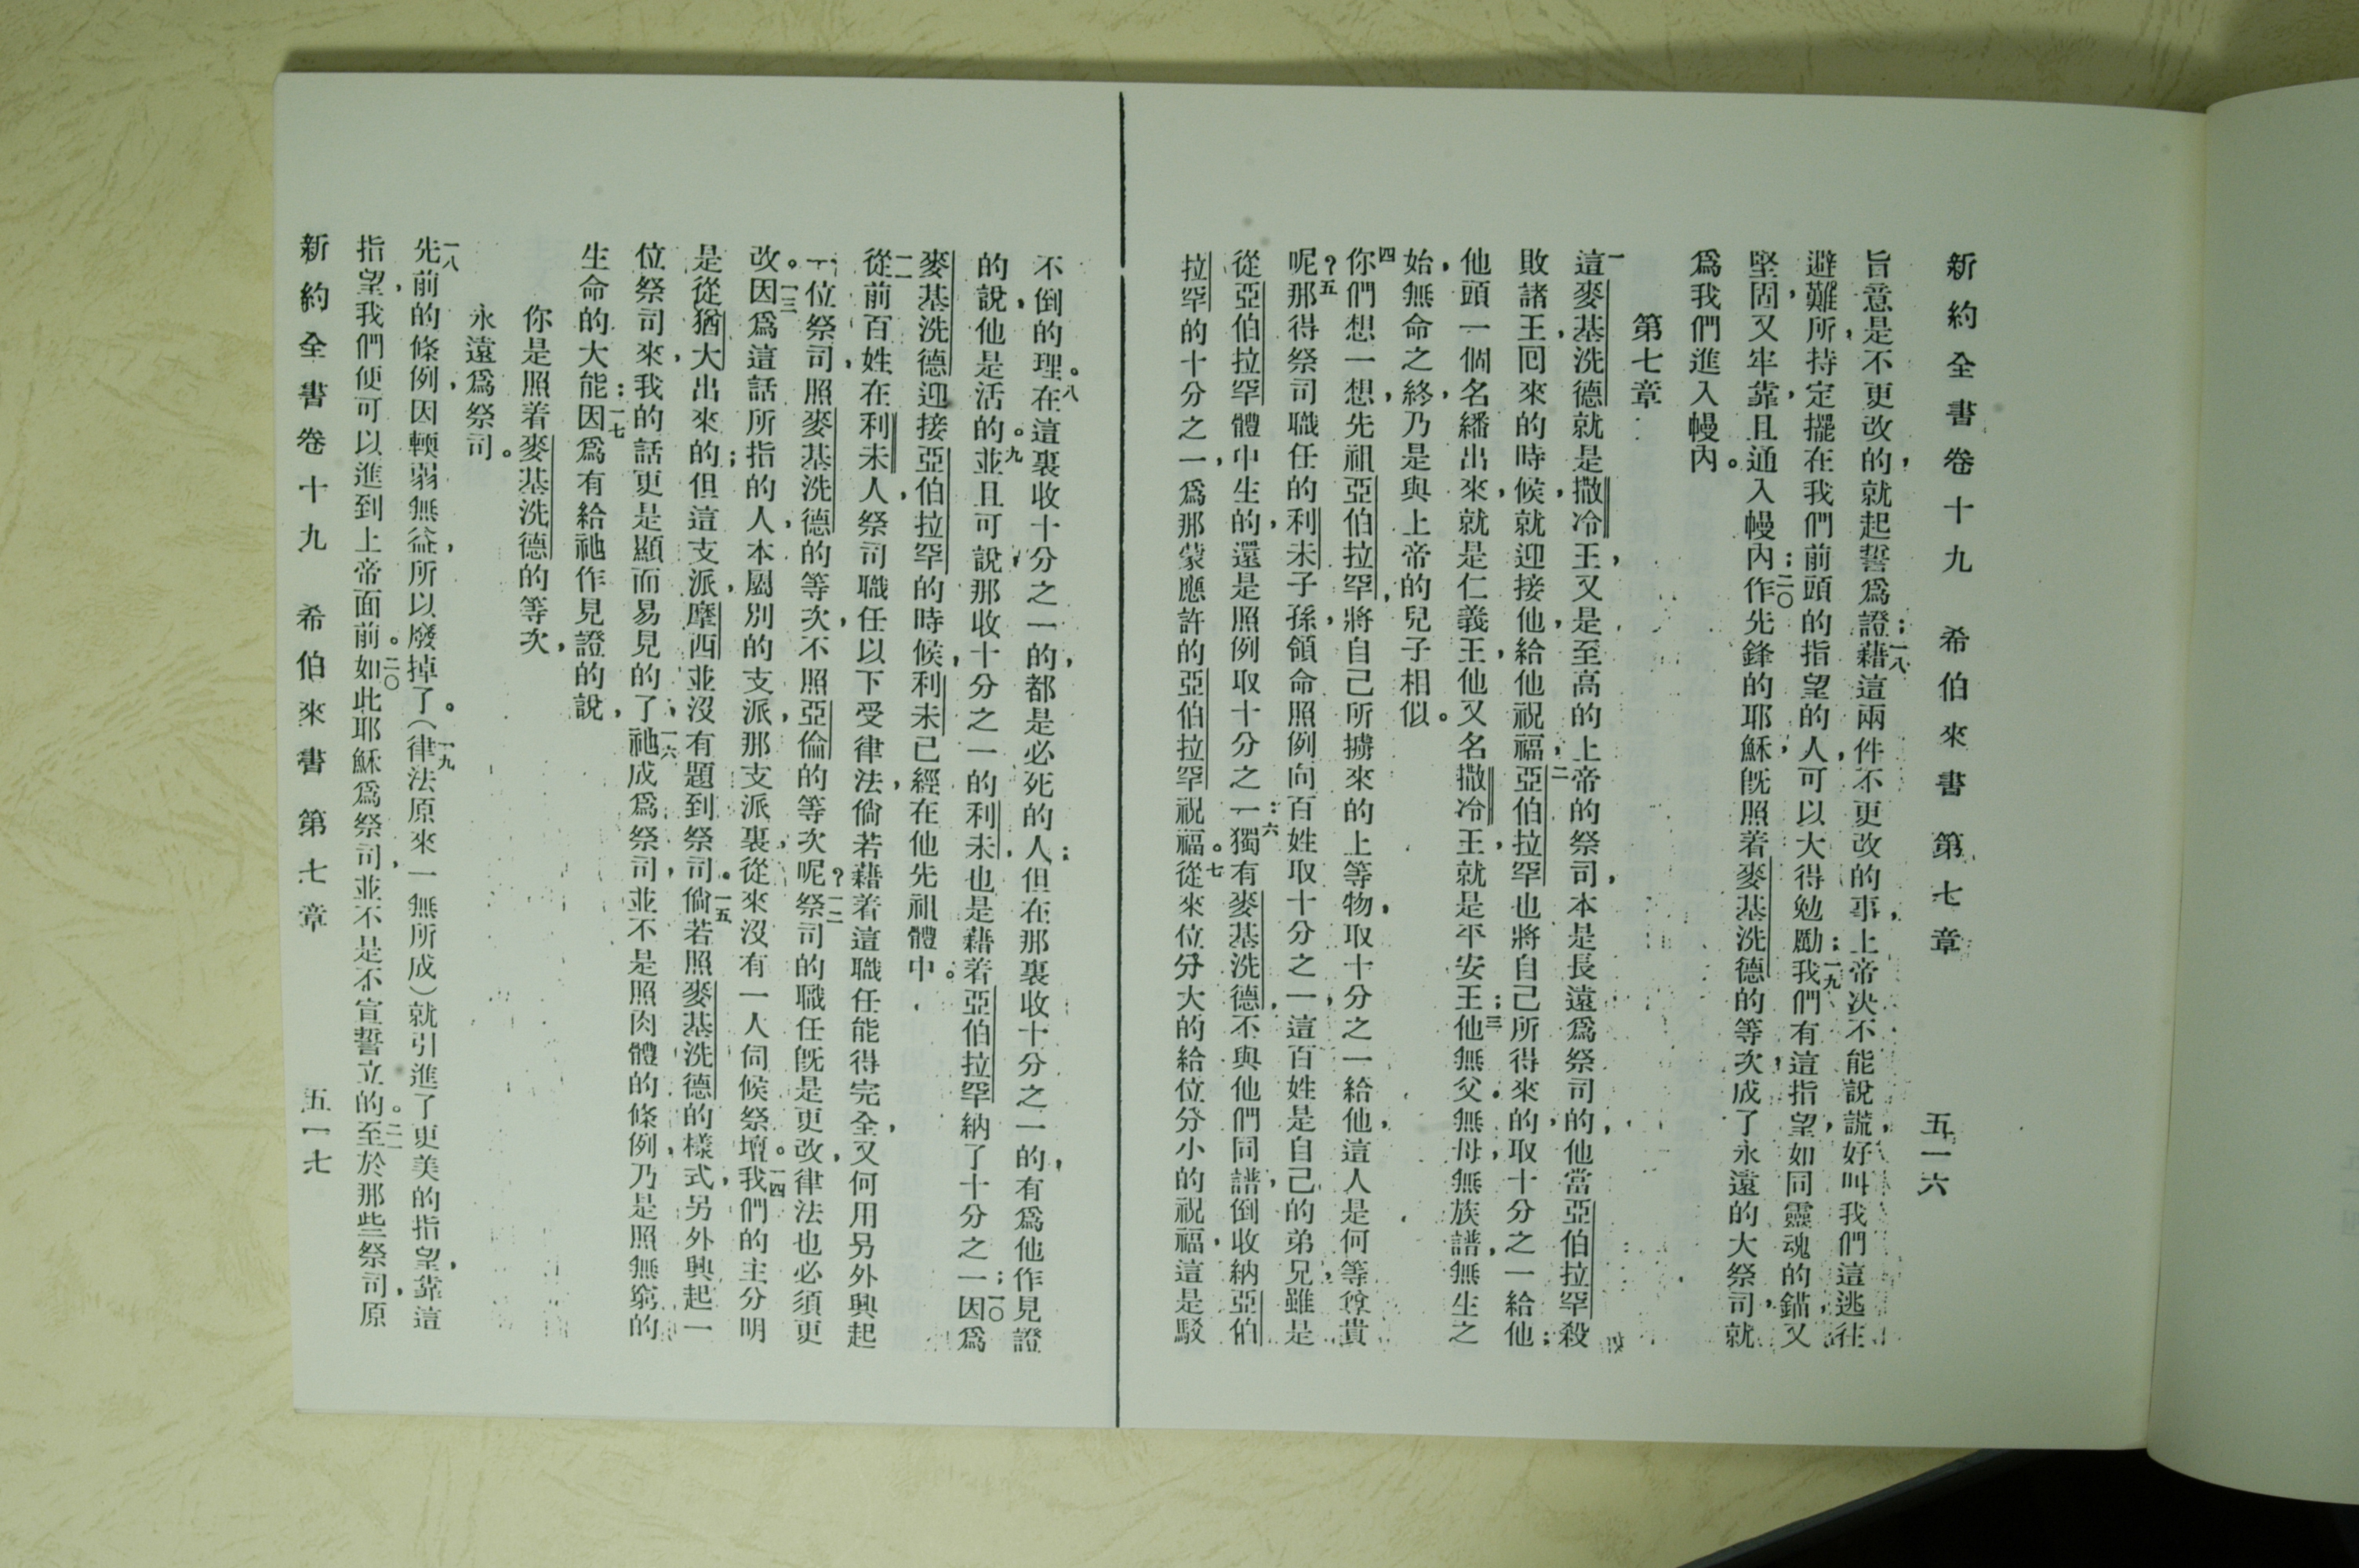 新約全書卷十九 希伯來書 第七章 五一六
旨意是不更改的，就起誓爲證；一八藉這兩件不更改的事，上帝決不能說謊，好叫我們這逃往
避難所，持定擺在我們前頭的指望的人，可以大得勉勵；一九我們有這指望，如同靈魂的錨，又
堅固，又牢靠，且通入幔內；二〇作先鋒的耶穌，旣照着麥基洗德的等次，成了永遠的大祭司，就
爲我們進入幔內。
第七章
一這麥基洗德，就是撒冷王，又是至高的上帝的祭司，本是長遠爲祭司的，他當亞伯拉罕殺
敗諸王，囘來的時候，就迎接他，給他祝福，二亞伯拉罕也將自己所得來的，取十分之一給他；
他頭一個名繙出來，就是仁義王，他又名撒冷王，就是平安王；三他無父，無母，無族譜，無生之
始，無命之終，乃是與上帝的兒子相似。
四你們想一想，先祖亞伯拉罕，將自己所擄來的上等物，取十分之一給他，這人是何等尊貴
呢？五那得祭司職任的利未子孫，領命照例向百姓取十分之一，這百姓是自己的弟兄，雖是
從亞伯拉罕體中生的，還是照例取十分之一；六獨有麥基洗德，不與他們同譜，倒收納亞伯
拉罕的十分之一，爲那蒙應許的亞伯拉罕祝福。七從來位分大的給位分小的祝福，這是駁
不倒的理。八在這裏收十分之一的，都是必死的人；但在那裏收十分之一的，有爲他作見證
的，說他是活的。九並且可說，那收十分之一的利未，也是藉着亞伯拉罕納了十分之一；一〇因爲
麥基洗德迎接亞伯拉罕的時候，利未已經在他先祖體中。
一一從前百姓在利未人祭司職任以下受律法，倘若藉着這職任能得完全，又何用另外興起
一位祭司，照麥基洗德的等次，不照亞倫的等次呢？一二祭司的職任旣是更改，律法也必須更
改。一三因爲這話所指的人，本屬別的支派，那支派裏，從來沒有一人伺候祭壇。一四我們的主分明
是從猶大出來的；但這支派，摩西並沒有題到祭司。一五倘若照麥基洗德的樣式，另外興起一
位祭司來，我的話更是顯而易見的了；一六祂成爲祭司，並不是照肉體的條例，乃是照無窮的
生命的大能；一七因爲有給祂作見證的說，
你是照着麥基洗德的等次，
永遠爲祭司。
一八先前的條例，因輭弱無益，所以廢掉了。一九（律法原來一無所成）就引進了更美的指望，靠這
指望，我們便可以進到上帝面前。二〇如此耶穌爲祭司，並不是不宣誓立的。二一至於那些祭司，原
新約全書卷十九 希伯來書 第七章 五一七